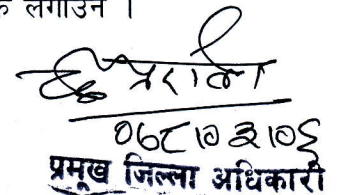 लगाउन ।
०६८।०३।०६
प्रमुख जिल्ला अधिकारी